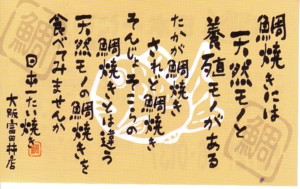 鯛焼きには
天然モノと
養殖モノがある
たかが鯛焼き
されど鯛焼き
そんじょそこらの
鯛焼きとは違う
天然モノの鯛焼きを
食べてみませんか
日本一たい焼き
大阪富田林店
鯛
鯛